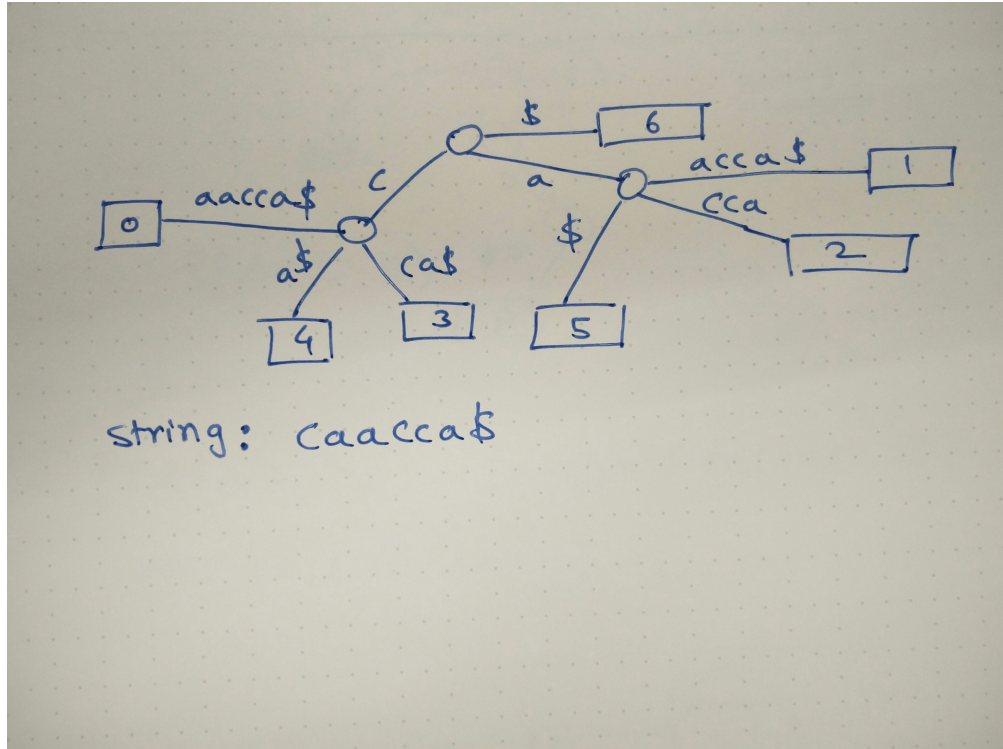 $
6
c
a
acca$
1
aacca$
0
cca
$
2
a$
ca$
4
3
5
string: caacca$